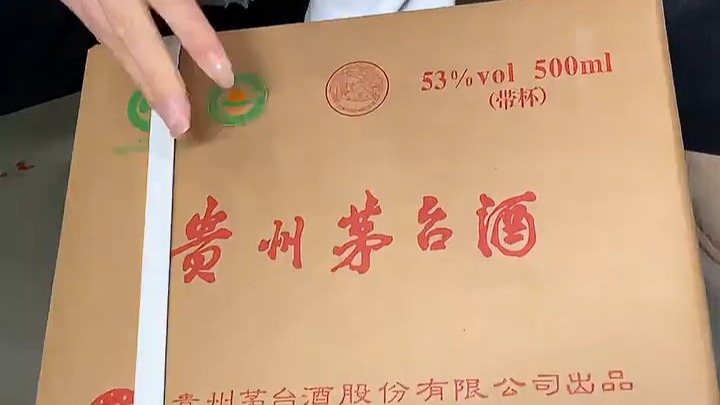 53%vol 500ml
(带杯)
贵州茅台酒
贵州茅台酒股份有限公司出品